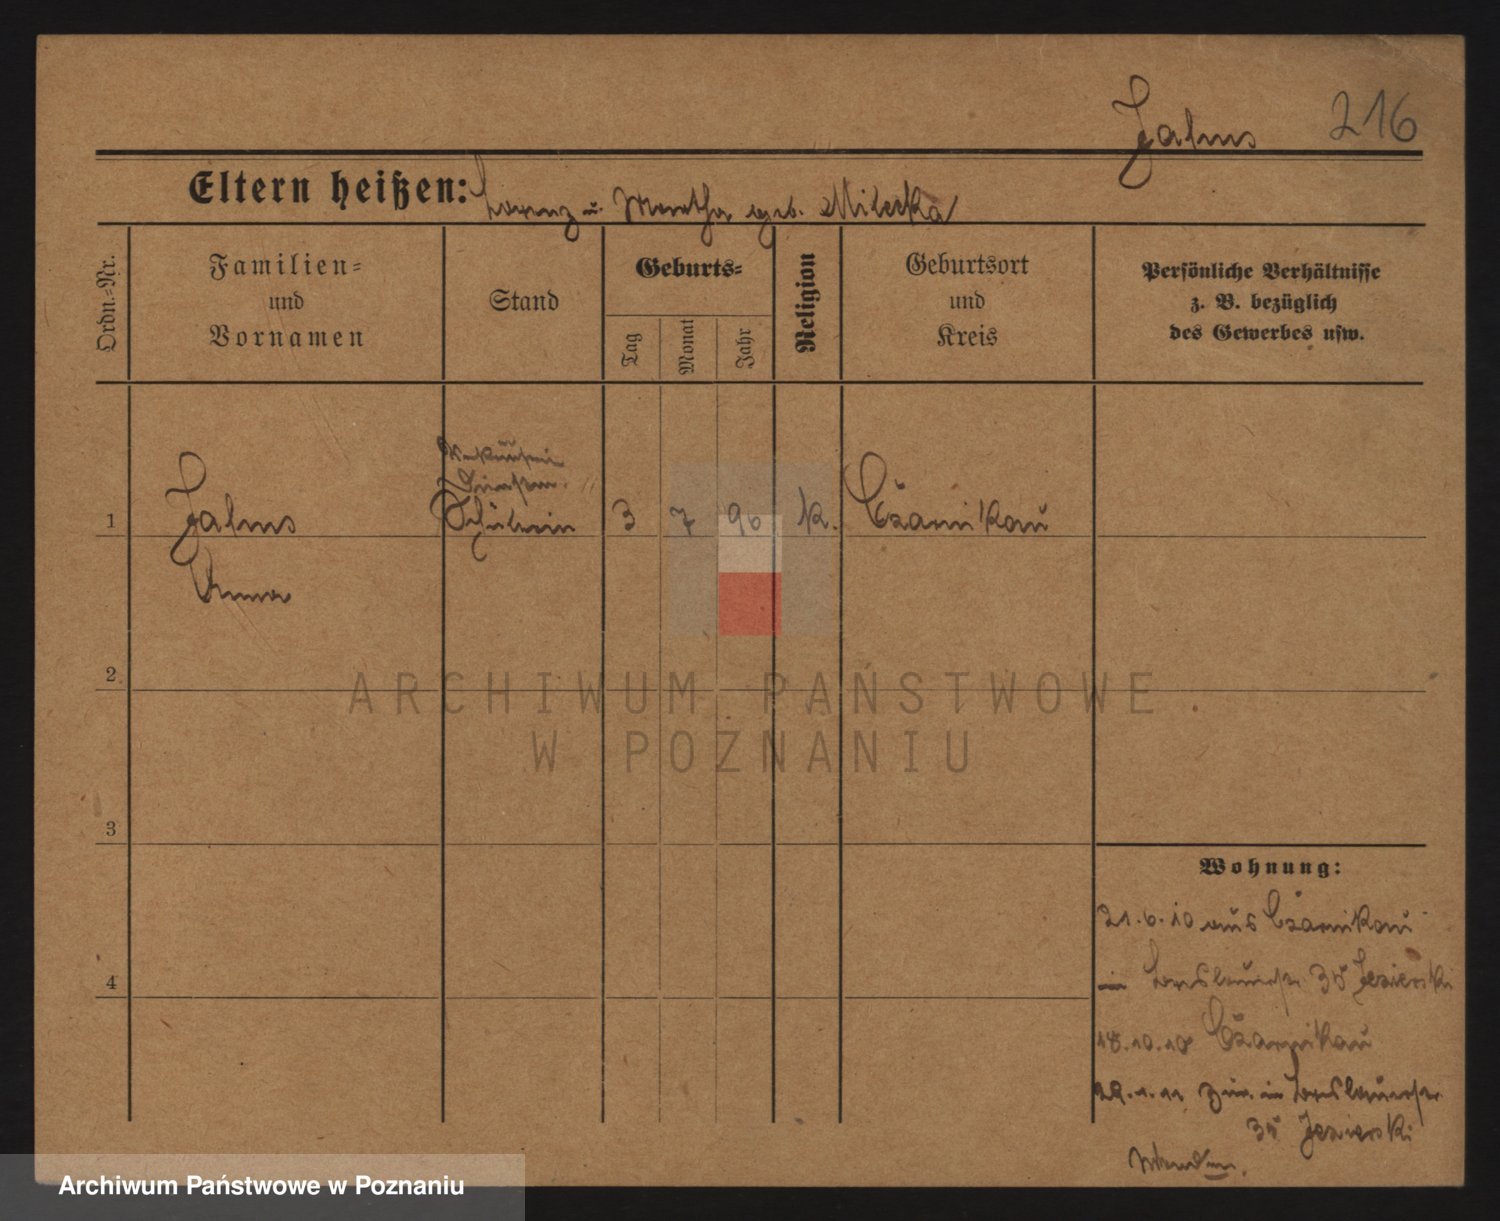 Jahns 216
Eltern heißen: Lorenz u. Martha geb. Milecka
Ordn.=Nr.
Familien=
und
Vornamen
Stand
Geburts=
Tag
Monat
Jahr
Religion
Geburtsort
und
Kreis
Persönliche Verhältnisse
z. B. bezüglich
des Gewerbes usw.
Verkäuferin
1 Jahns Schülerin 3 7 90 k. Czarnikau
Anna
2
3
4
Wohnung:
21.6.10 aus Czarnikau
in Breslauerstr 35 Jezierski
18.10.10 Czarnikau
22.1.11 zur. in Breslauerstr
35 Jezierski
Wenden.
ARCHIWUM PAŃSTWOWE
W POZNANIU
Archiwum Państwowe w Poznaniu